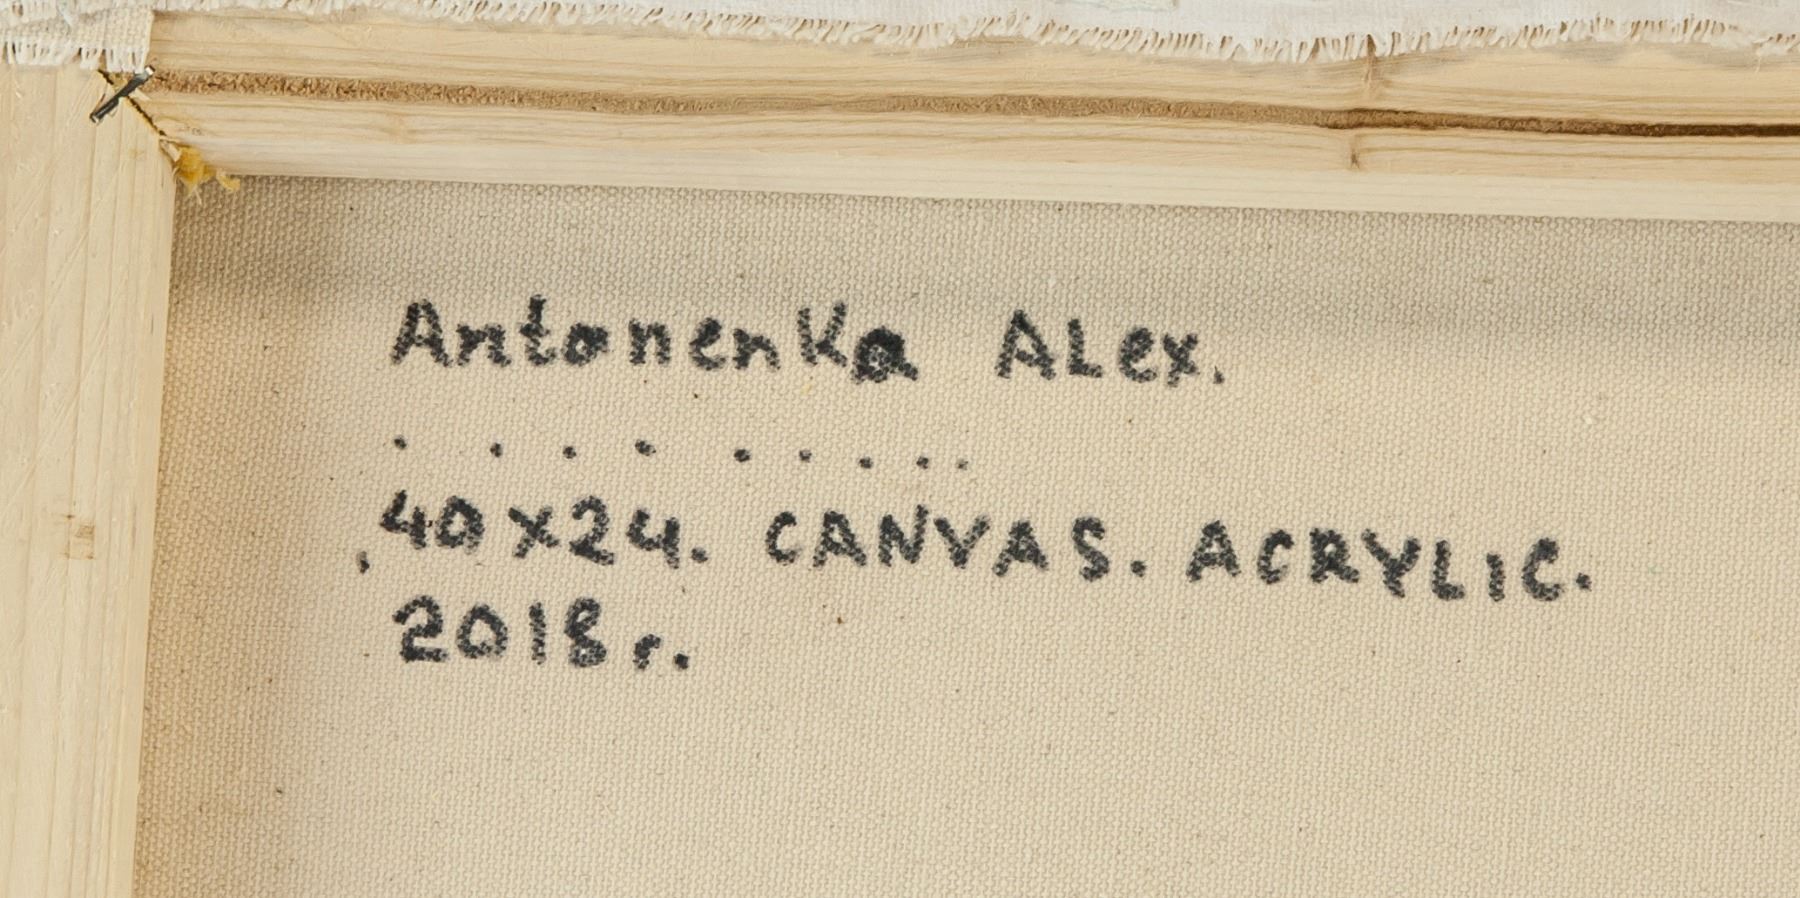 Antonenka ALex.
. . . . . . . . .
40x24. CANVAS. ACRYLIC.
2018г.